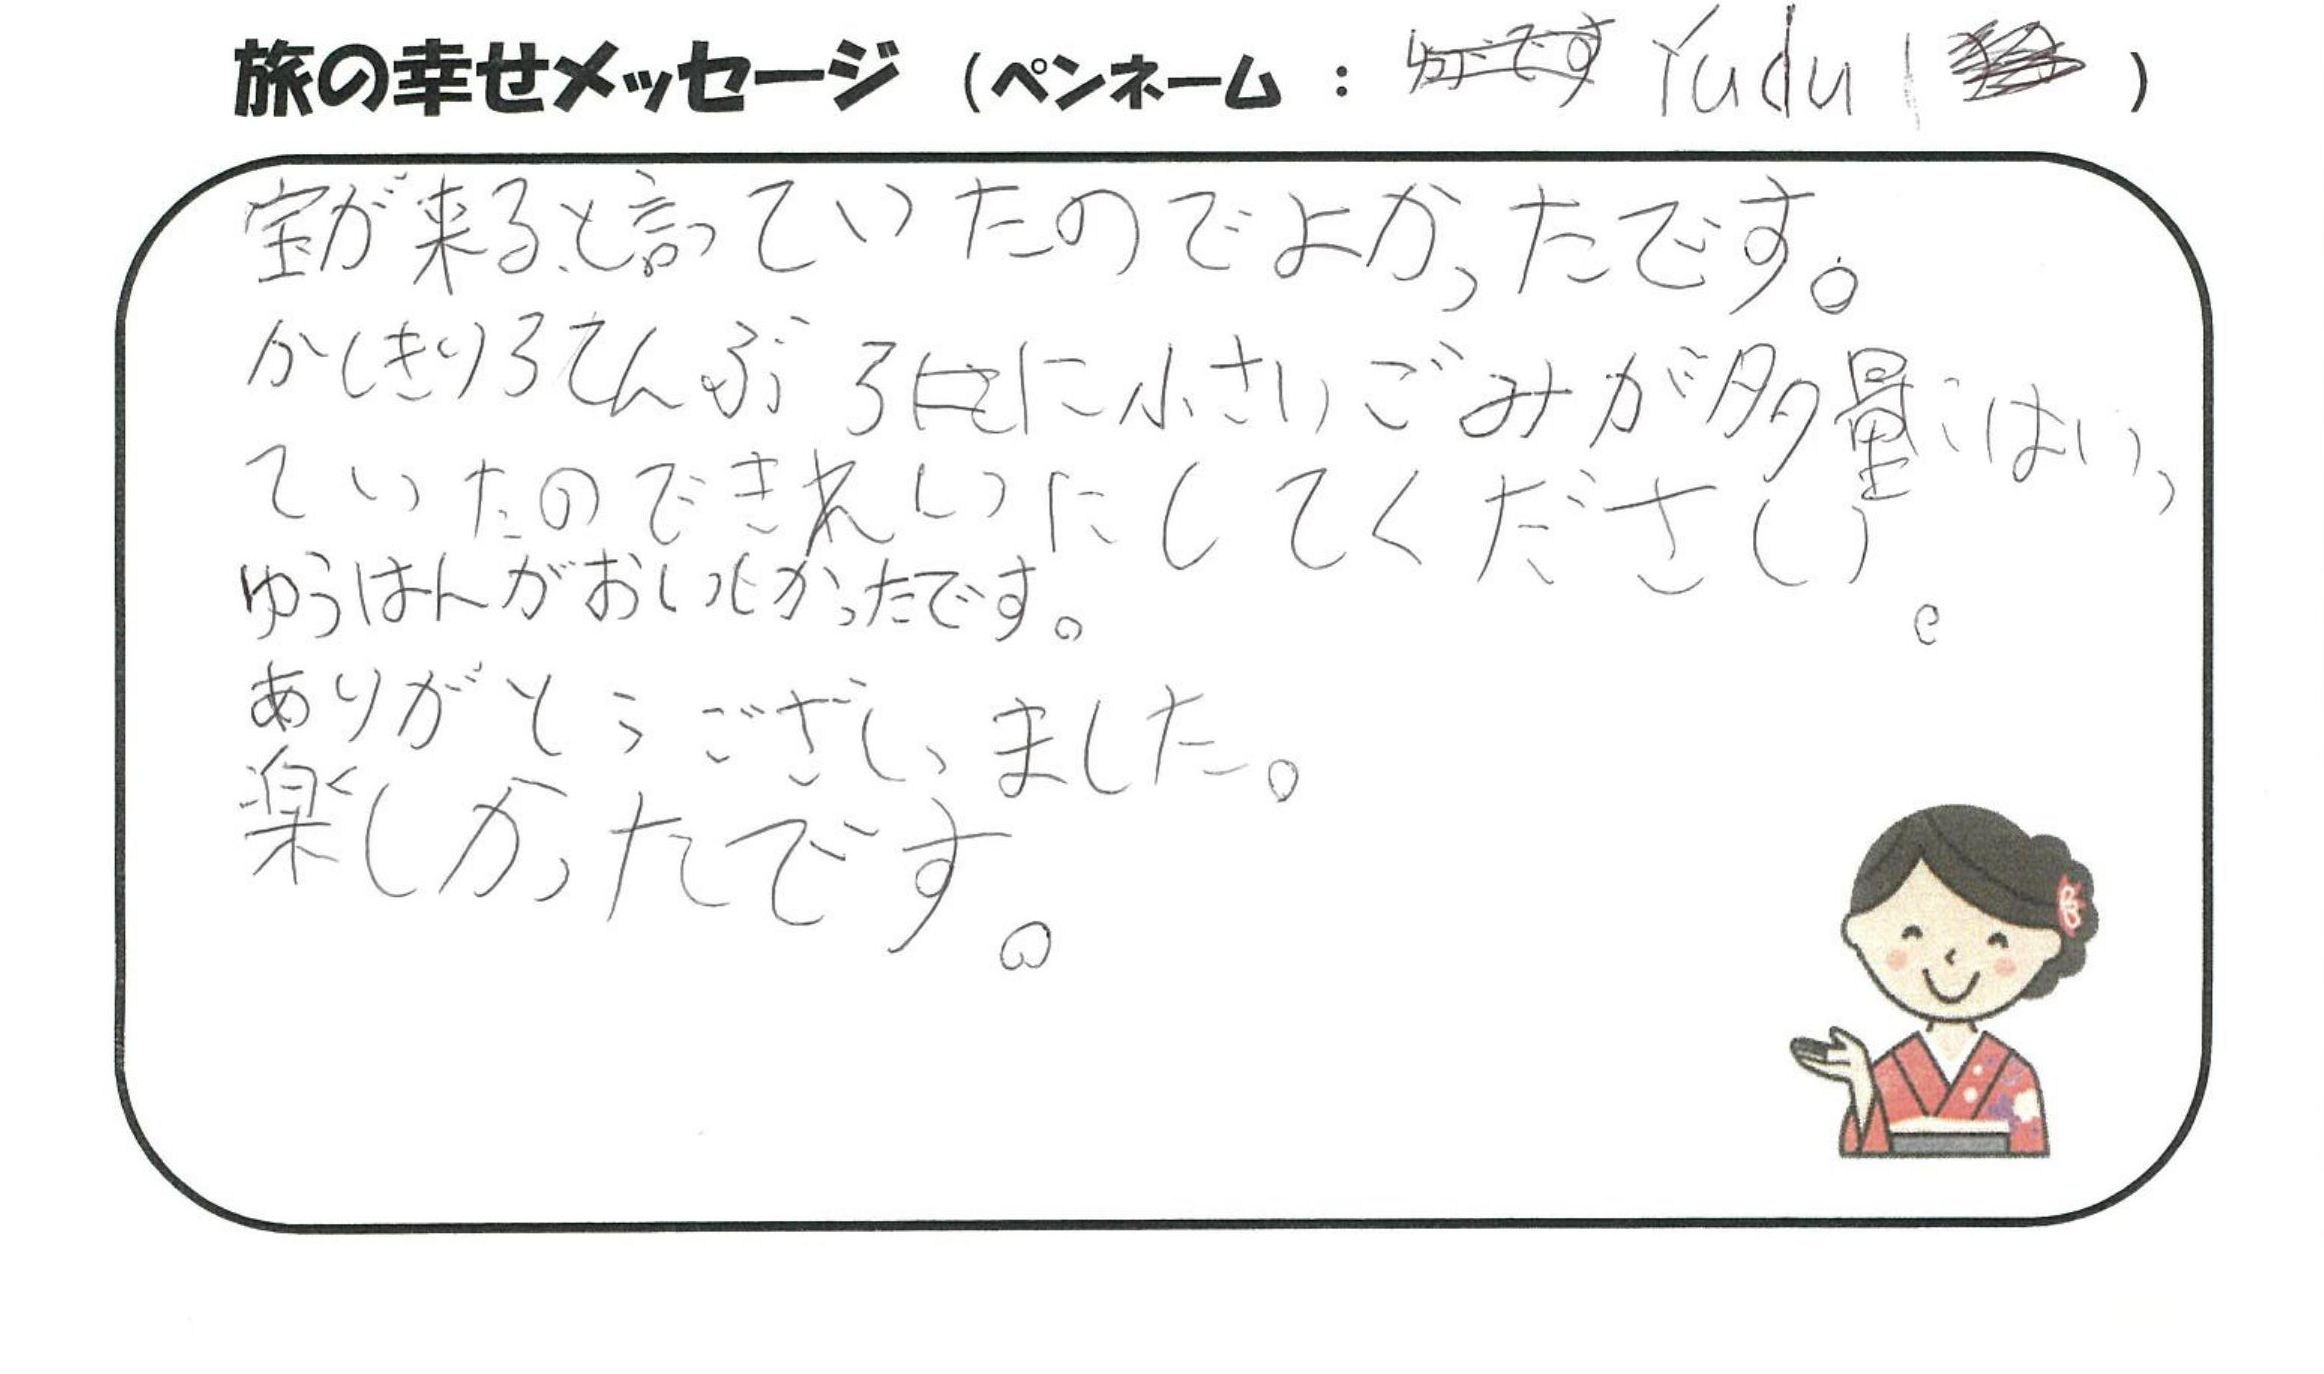 旅の幸せメッセージ (ペンネーム : Yudu )
宝が来ると言っていたのでよかったです。
かしきりろてんぶろに小さいごみが多量にはいっ
ていたのできれいにしてください。
ゆうはんがおいしかったです。
ありがとうございました。
楽しかったです。